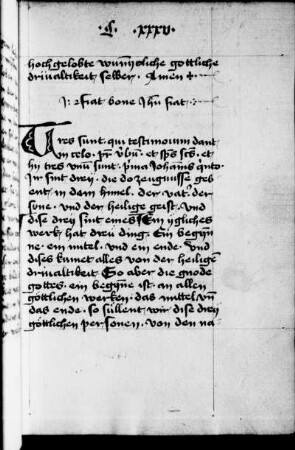 ·C· ·xxxv·
hochgelobte wunnigliche gottliche
driualtikeit selber · Amen ·
fiat bone Ihu fiat ·
Tres sunt qui testimonium dant
in celo · pr̄ v̄bū · et sp̄s sc̄s · et
hij tres vnū sunt · p̄ma Johānis qͥnto ·
Jr sint drey · die do zeugnisse ge
bent in dem himel · der vater · der
sone · vnd der heilige geist · Vnd
dise drey sint eines Ein yglichs
werk hat drey ding · Ein begyn
ne · ein mitel · vnd ein ende Vnd
dises kumet alles von der heiligē
driualtikeit So aber die gnode
gottes · ein begyne ist · an allen
göttlichen werken · das mittel vn̄
das ende · so süllent wir dise drey
göttlichen personen · von den na